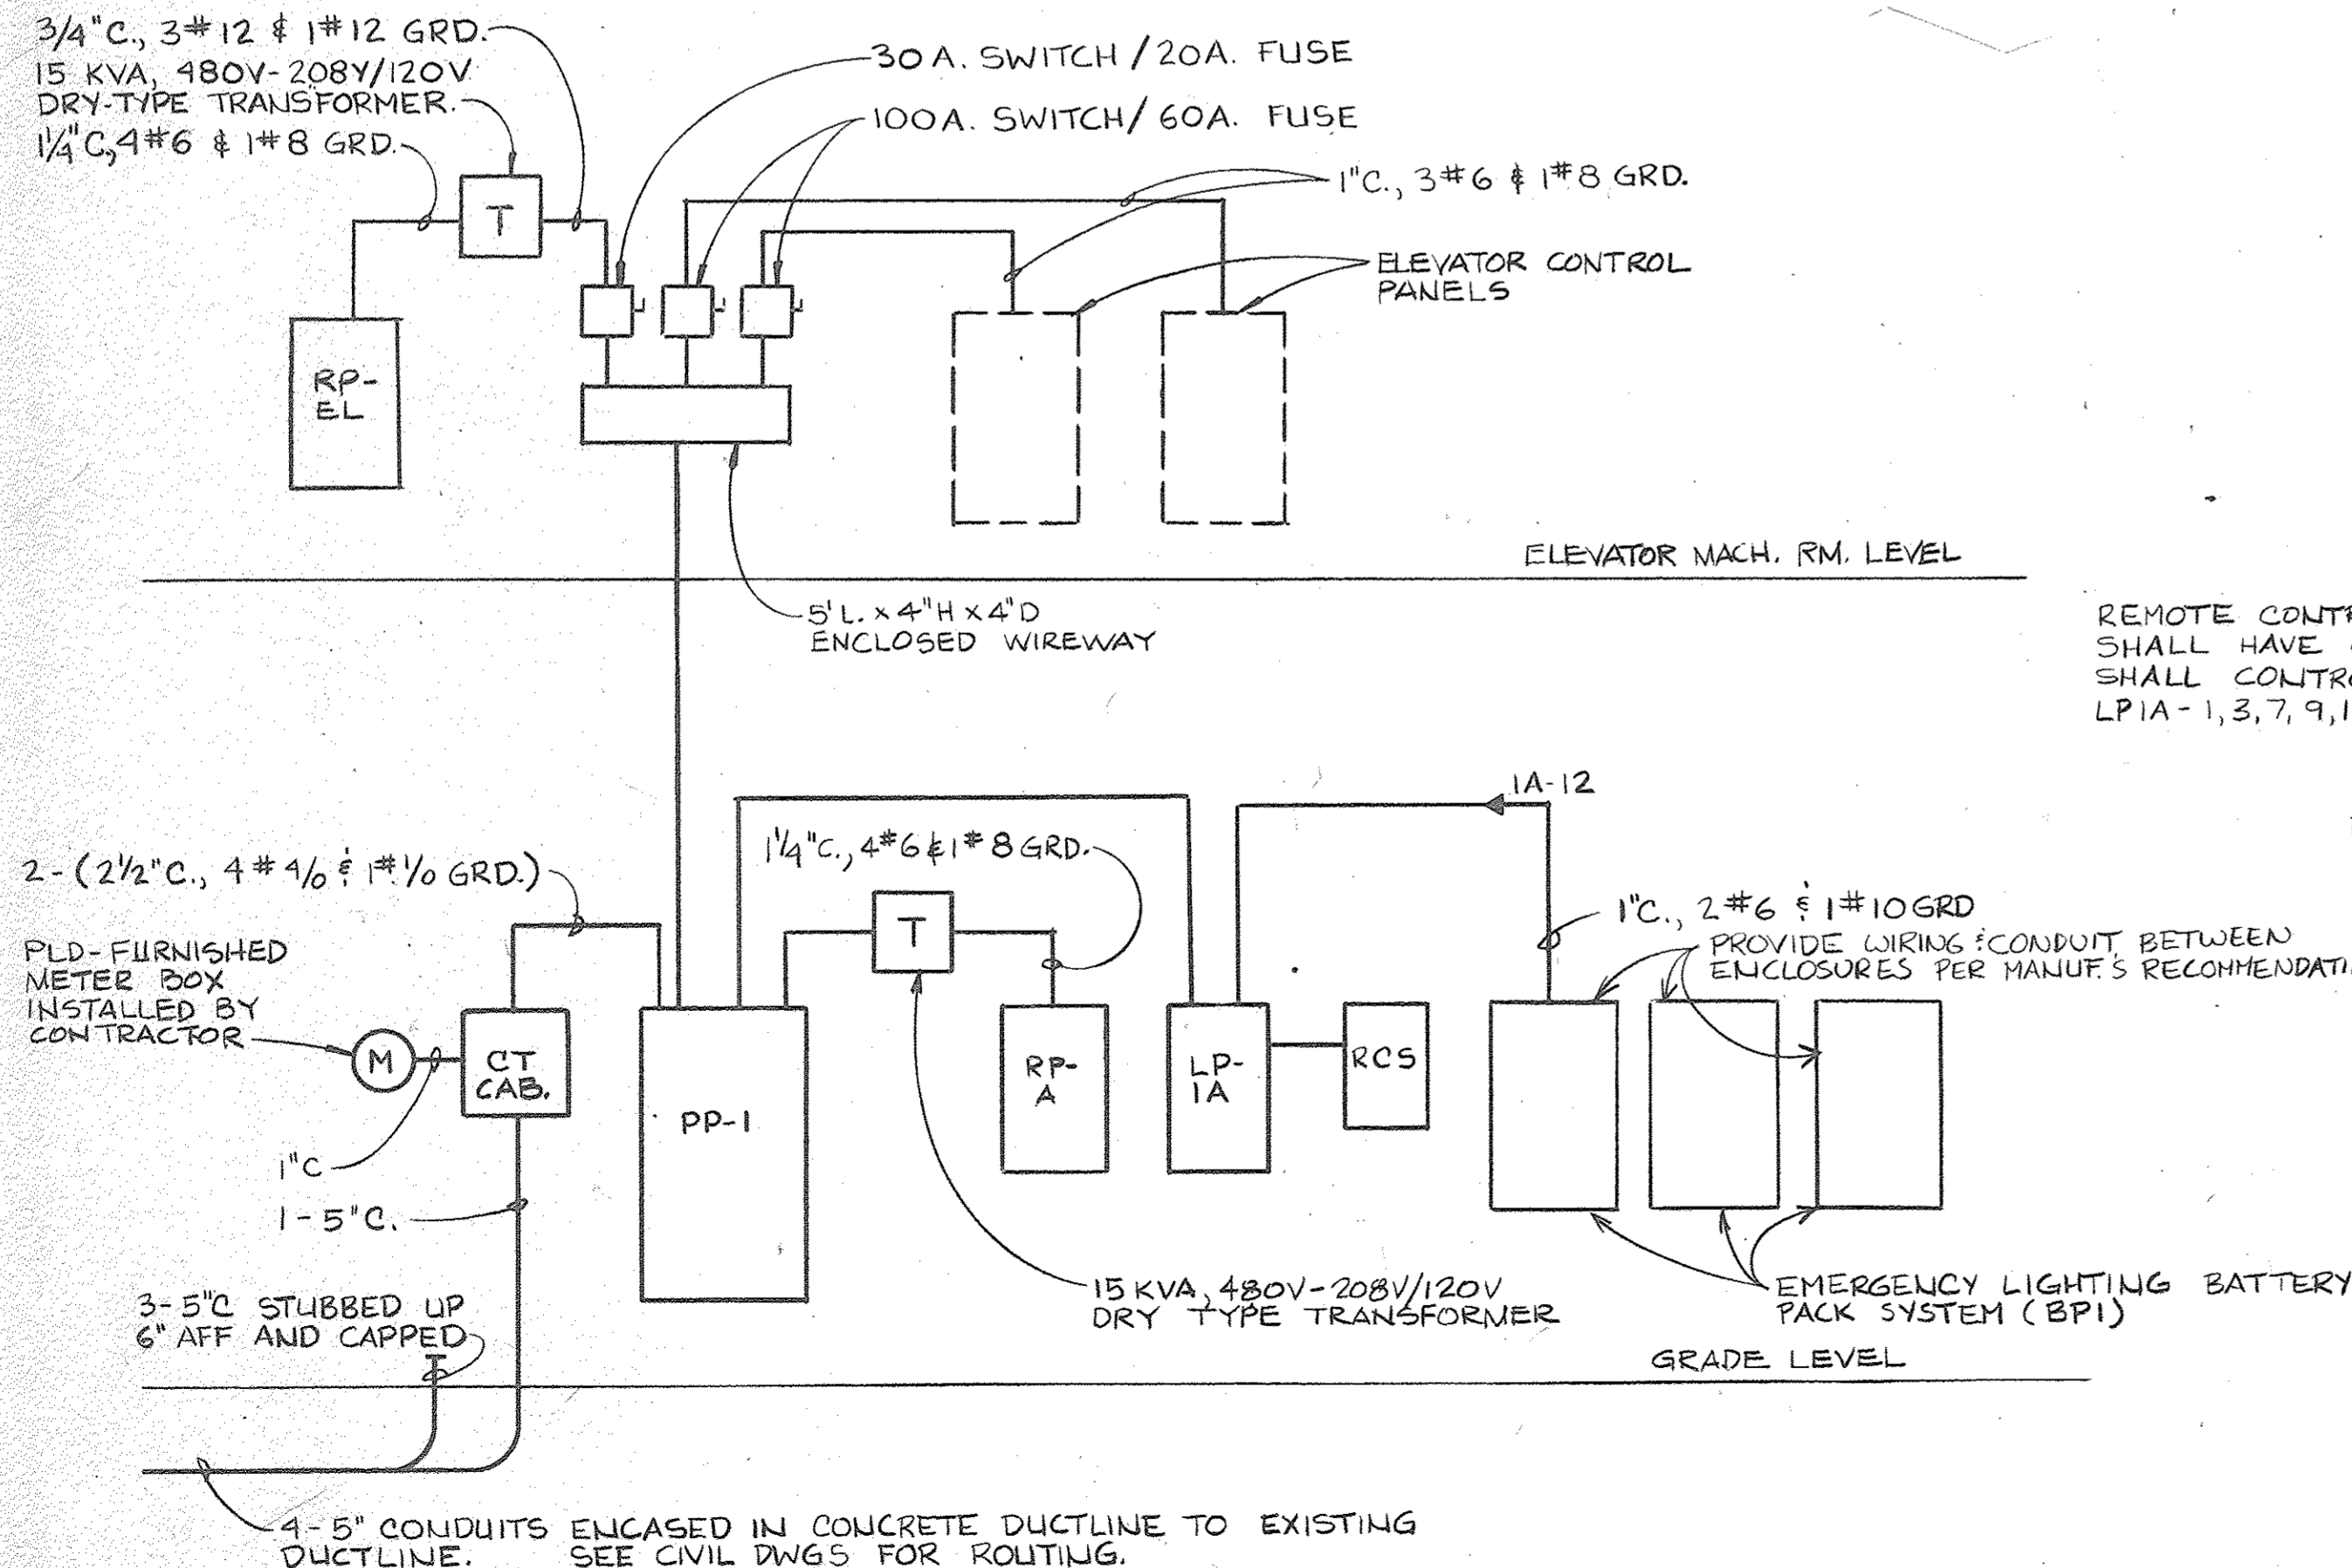 3/4"C., 3#12 & 1#12 GRD.
15 KVA, 480V-208Y/120V
DRY-TYPE TRANSFORMER.
1¼"C., 4#6 & 1#8 GRD.
30A. SWITCH/20A. FUSE
100A. SWITCH/60A. FUSE
1"C., 3#6 & 1#8 GRD.
ELEVATOR CONTROL
PANELS
T
RP-
EL
ELEVATOR MACH. RM. LEVEL
5'L. x 4"H x 4"D
ENCLOSED WIREWAY
REMOTE
SHALL HAVE
SHALL
LP1A-1,3,7,9,
1A-12
1¼"C., 4#6 & 1#8 GRD.
2-(2½"C., 4#4/0 & 1#1/0 GRD.)
T
1"C., 2#6 & 1#10 GRD
PROVIDE WIRING & CONDUIT BETWEEN
ENCLOSURES PER MANUF.'S
PLD-FURNISHED
METER BOX
INSTALLED BY
CONTRACTOR
M
CT
CAB.
PP-1
RP-
A
LP-
1A
RCS
1"C
1-5"C.
15 KVA, 480V-208V/120V
DRY TYPE TRANSFORMER
EMERGENCY LIGHTING BATTERY
PACK SYSTEM (BP1)
3-5"C STUBBED UP
6" AFF AND CAPPED
GRADE LEVEL
4-5" CONDUITS ENCASED IN CONCRETE DUCTLINE TO EXISTING
DUCTLINE. SEE CIVIL DWGS FOR ROUTING.